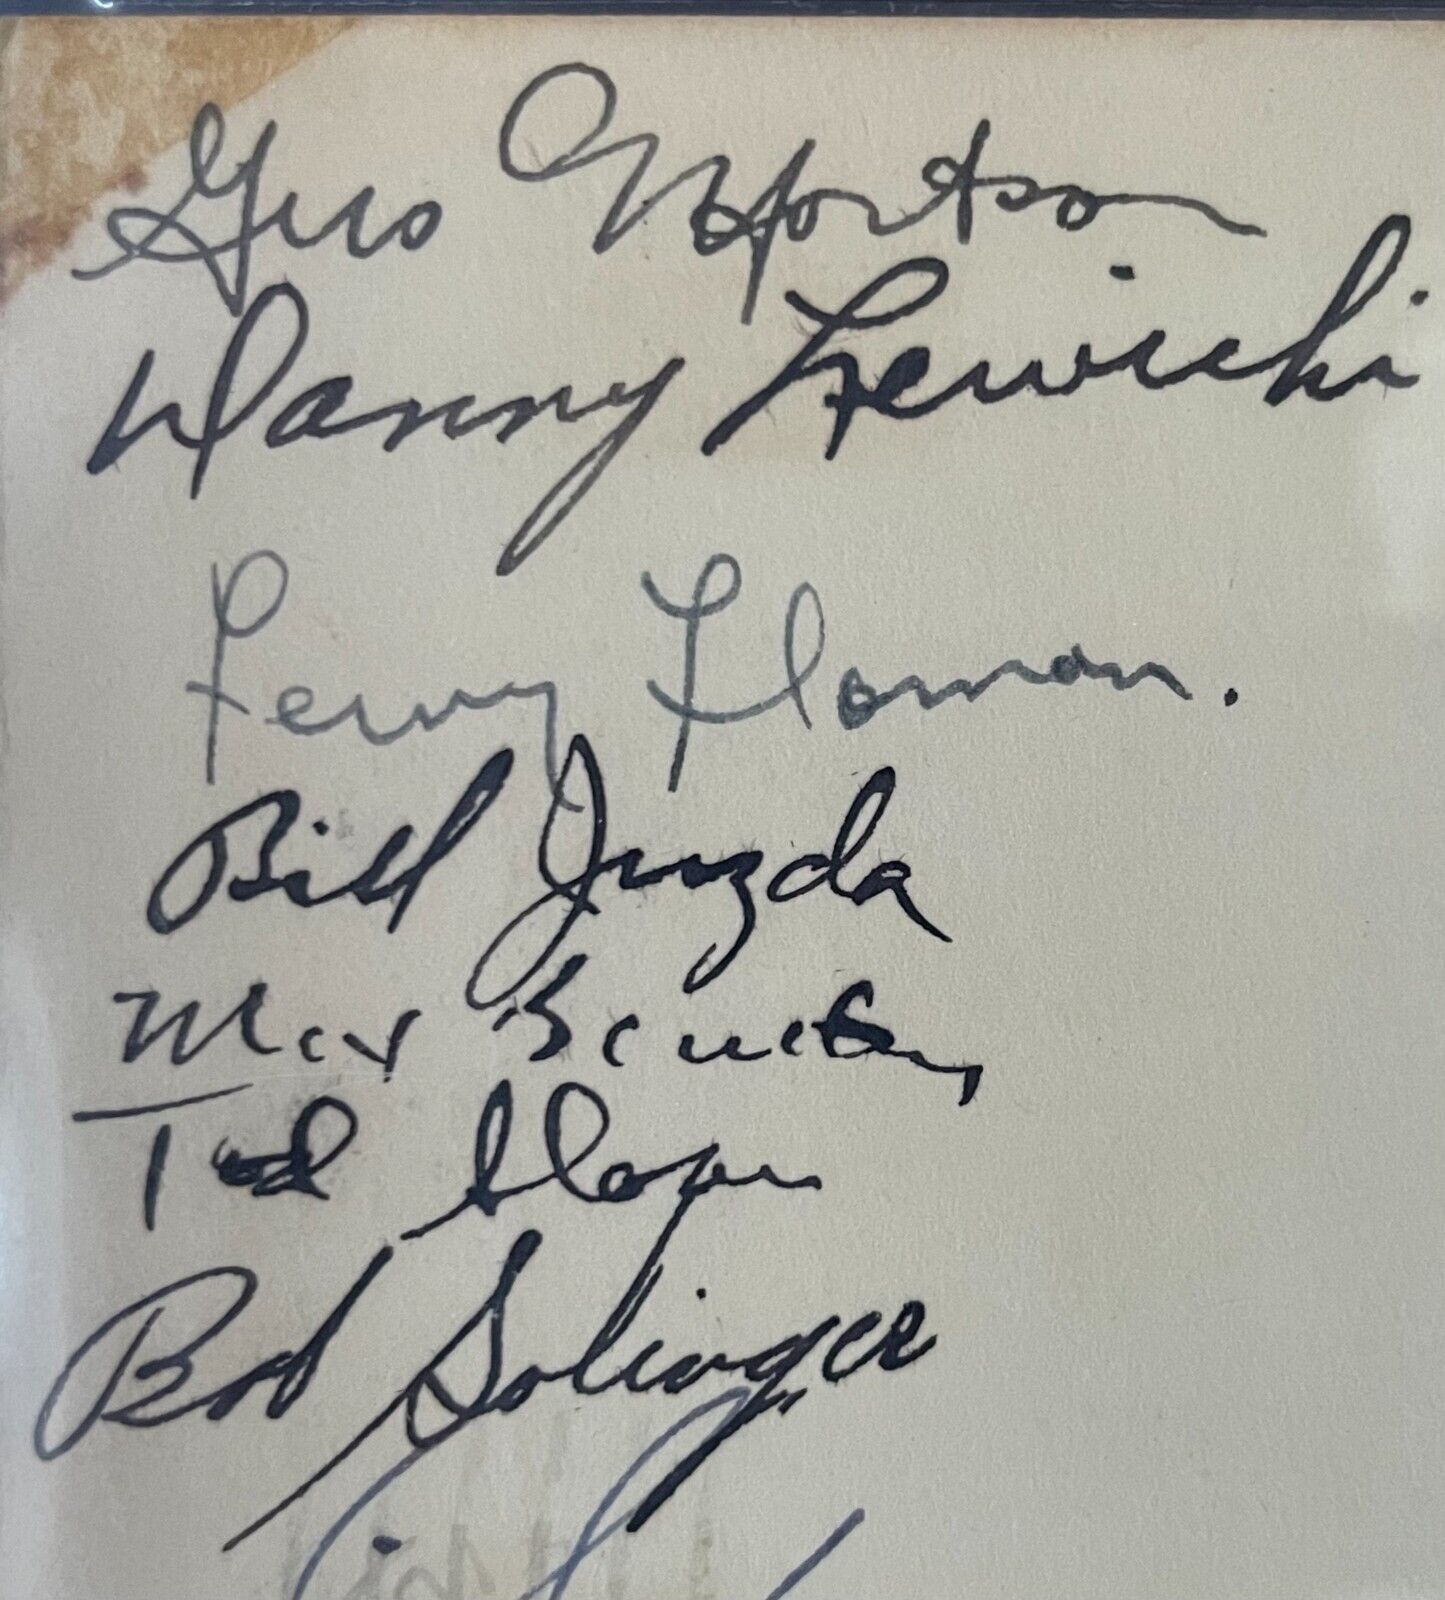 Gus Mortson
Danny Lewicki
Ferny Flaman.
Bill Juzda
Max Bentley
Tod Sloan
Bob Solinger